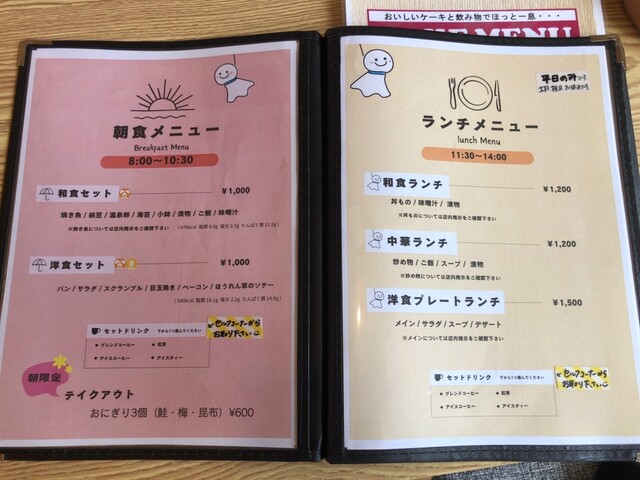 おいしいケーキと飲み物でほっと一息・・・
MENU
朝食メニュー
Breakfast Menu
8:00〜10:30
和食セット ¥1,000
焼き魚 / 納豆 / 温泉卵 / 海苔 / 小鉢 / 漬物 / ご飯 / 味噌汁
※焼き魚については店内掲示をご確認下さい
洋食セット ¥1,000
パン / サラダ / スクランブル / 目玉焼き / ベーコン / ほうれん草のソテー
セットドリンク 下から1つ選んでください
ブレンドコーヒー 紅茶
アイスコーヒー アイスティー
セルフコーナーから
お取り下さい
朝限定
テイクアウト
おにぎり3個(鮭・梅・昆布)¥600
平日のみ
ランチメニュー
lunch Menu
11:30〜14:00
和食ランチ ¥1,200
丼もの / 味噌汁 / 漬物
※丼ものについては店内掲示をご確認下さい
中華ランチ ¥1,200
炒め物 / ご飯 / スープ / 漬物
※炒め物については店内掲示をご確認下さい
洋食プレートランチ ¥1,500
メイン / サラダ / スープ / デザート
※メインについては店内掲示をご確認下さい
セットドリンク 下から1つ選んでください
ブレンドコーヒー 紅茶
アイスコーヒー アイスティー
セルフコーナーから
お取り下さい